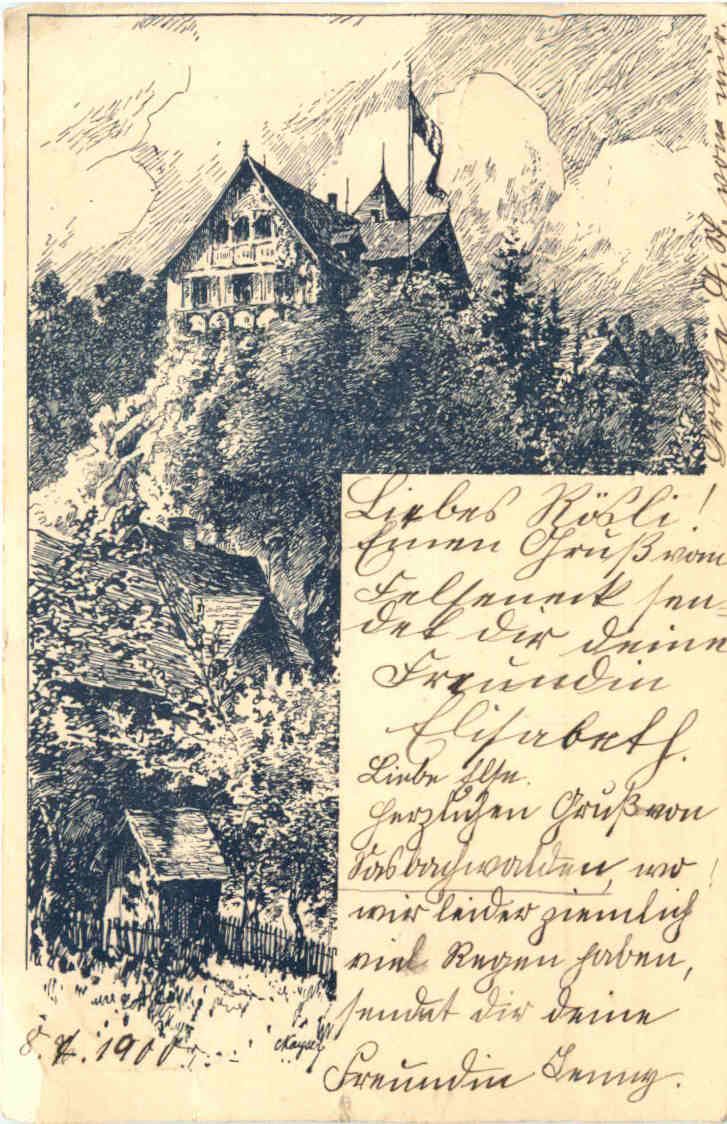 Liebes Rösli!
Einen Gruß vom
Felseneck sen-
det dir deine
Freundin
Elisabeth.
Liebe Else.
herzlichen Gruß von
Sasbachwalden, wo
wir leider ziemlich
viel Regen haben,
sendet dir deine
Freundin Jenny.
8. 7. 1900
von mir.